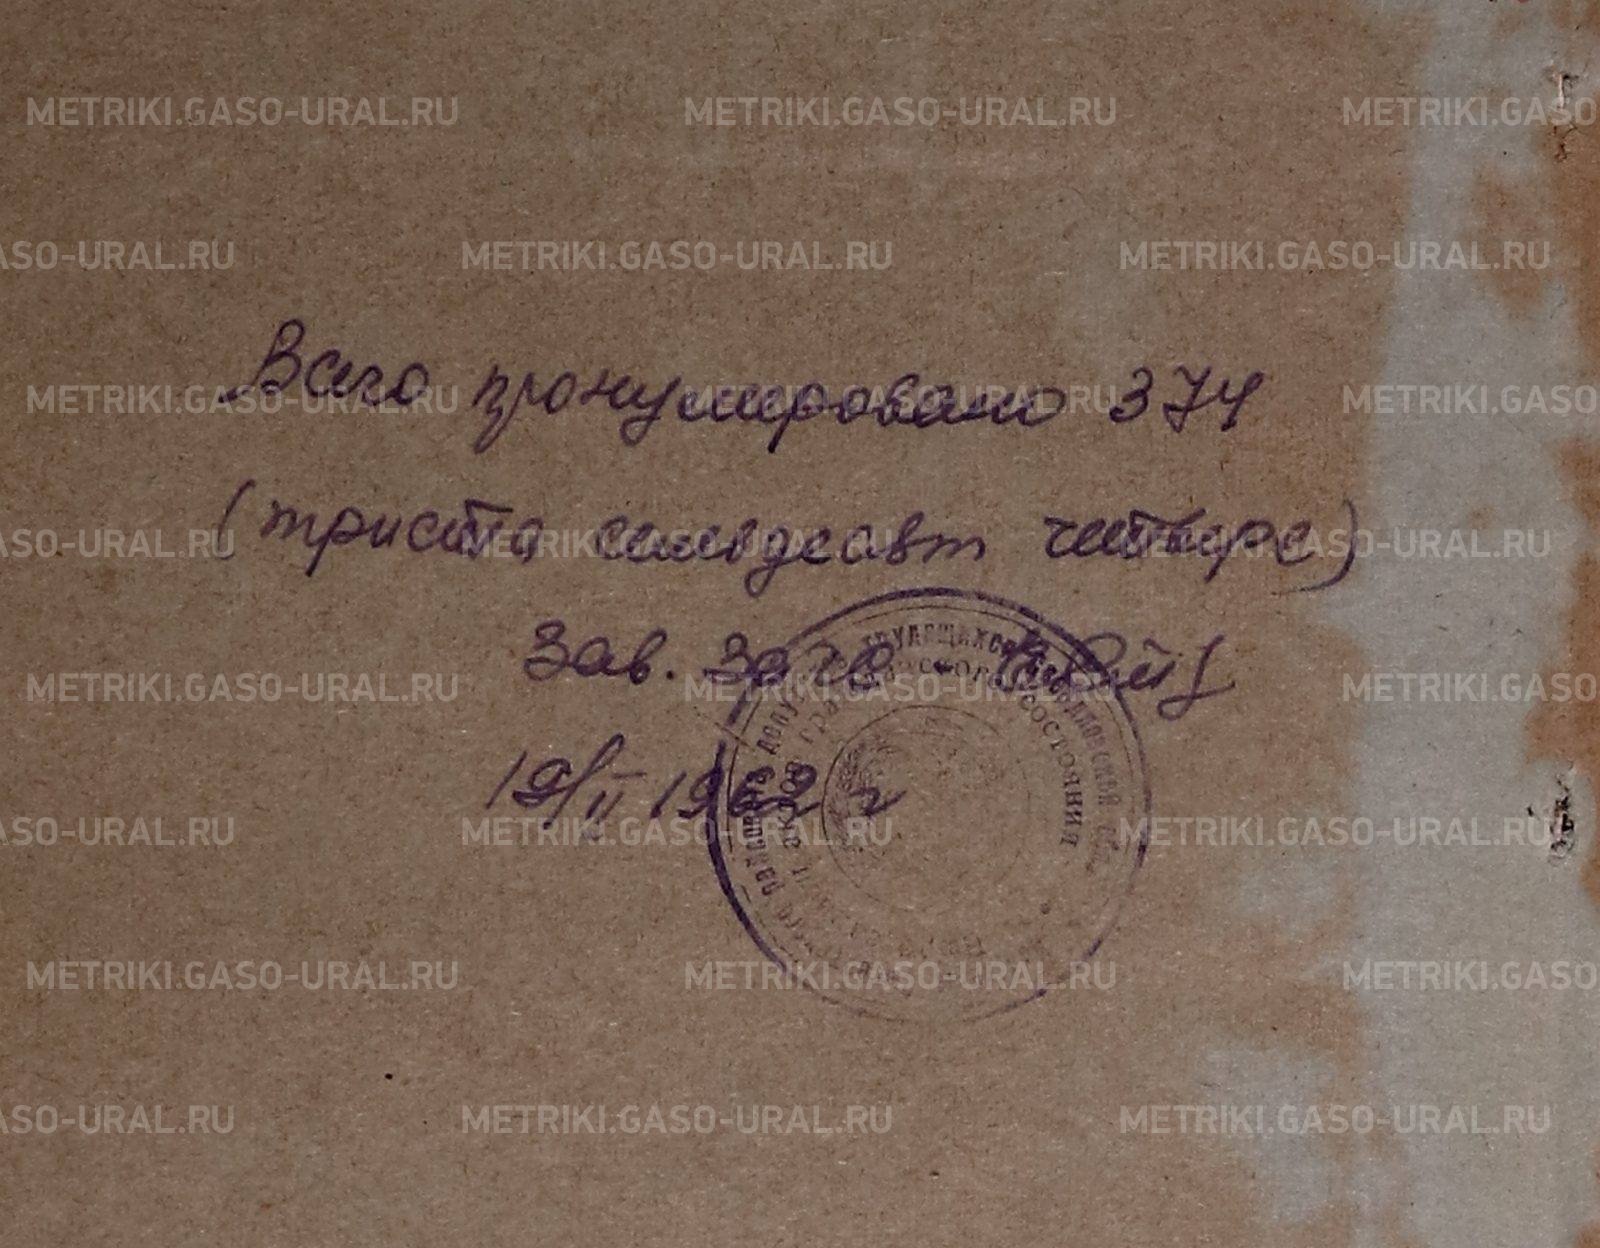 METRIKI.GASO-URAL.RU METRIKI.GASO-URAL.RU METRIKI.GASO
ASO-URAL.RU METRIKI.GASO-URAL.RU METRIKI.GASO-URAL.RU
Всего пронумеровано 374
METRIKI.GASO-URAL.RU METRIKI.GASO-URAL.RU METRIKI.GASO
(триста семьдесят четыре)
ASO-URAL.RU METRIKI.GASO-URAL.RU METRIKI.GASO-URAL.RU
Зав. Загс
METRIKI.GASO-URAL.RU METRIKI.GASO-URAL.RU METRIKI.GASO
19/II 1962 г
ASO-URAL.RU METRIKI.GASO-URAL.RU METRIKI.GASO-URAL.RU
трудящихся Свердловской обл.
состояния
METRIKI.GASO-URAL.RU METRIKI.GASO-URAL.RU METRIKI.GASO
ASO-URAL.RU METRIKI.GASO-URAL.RU METRIKI.GASO-URAL.RU